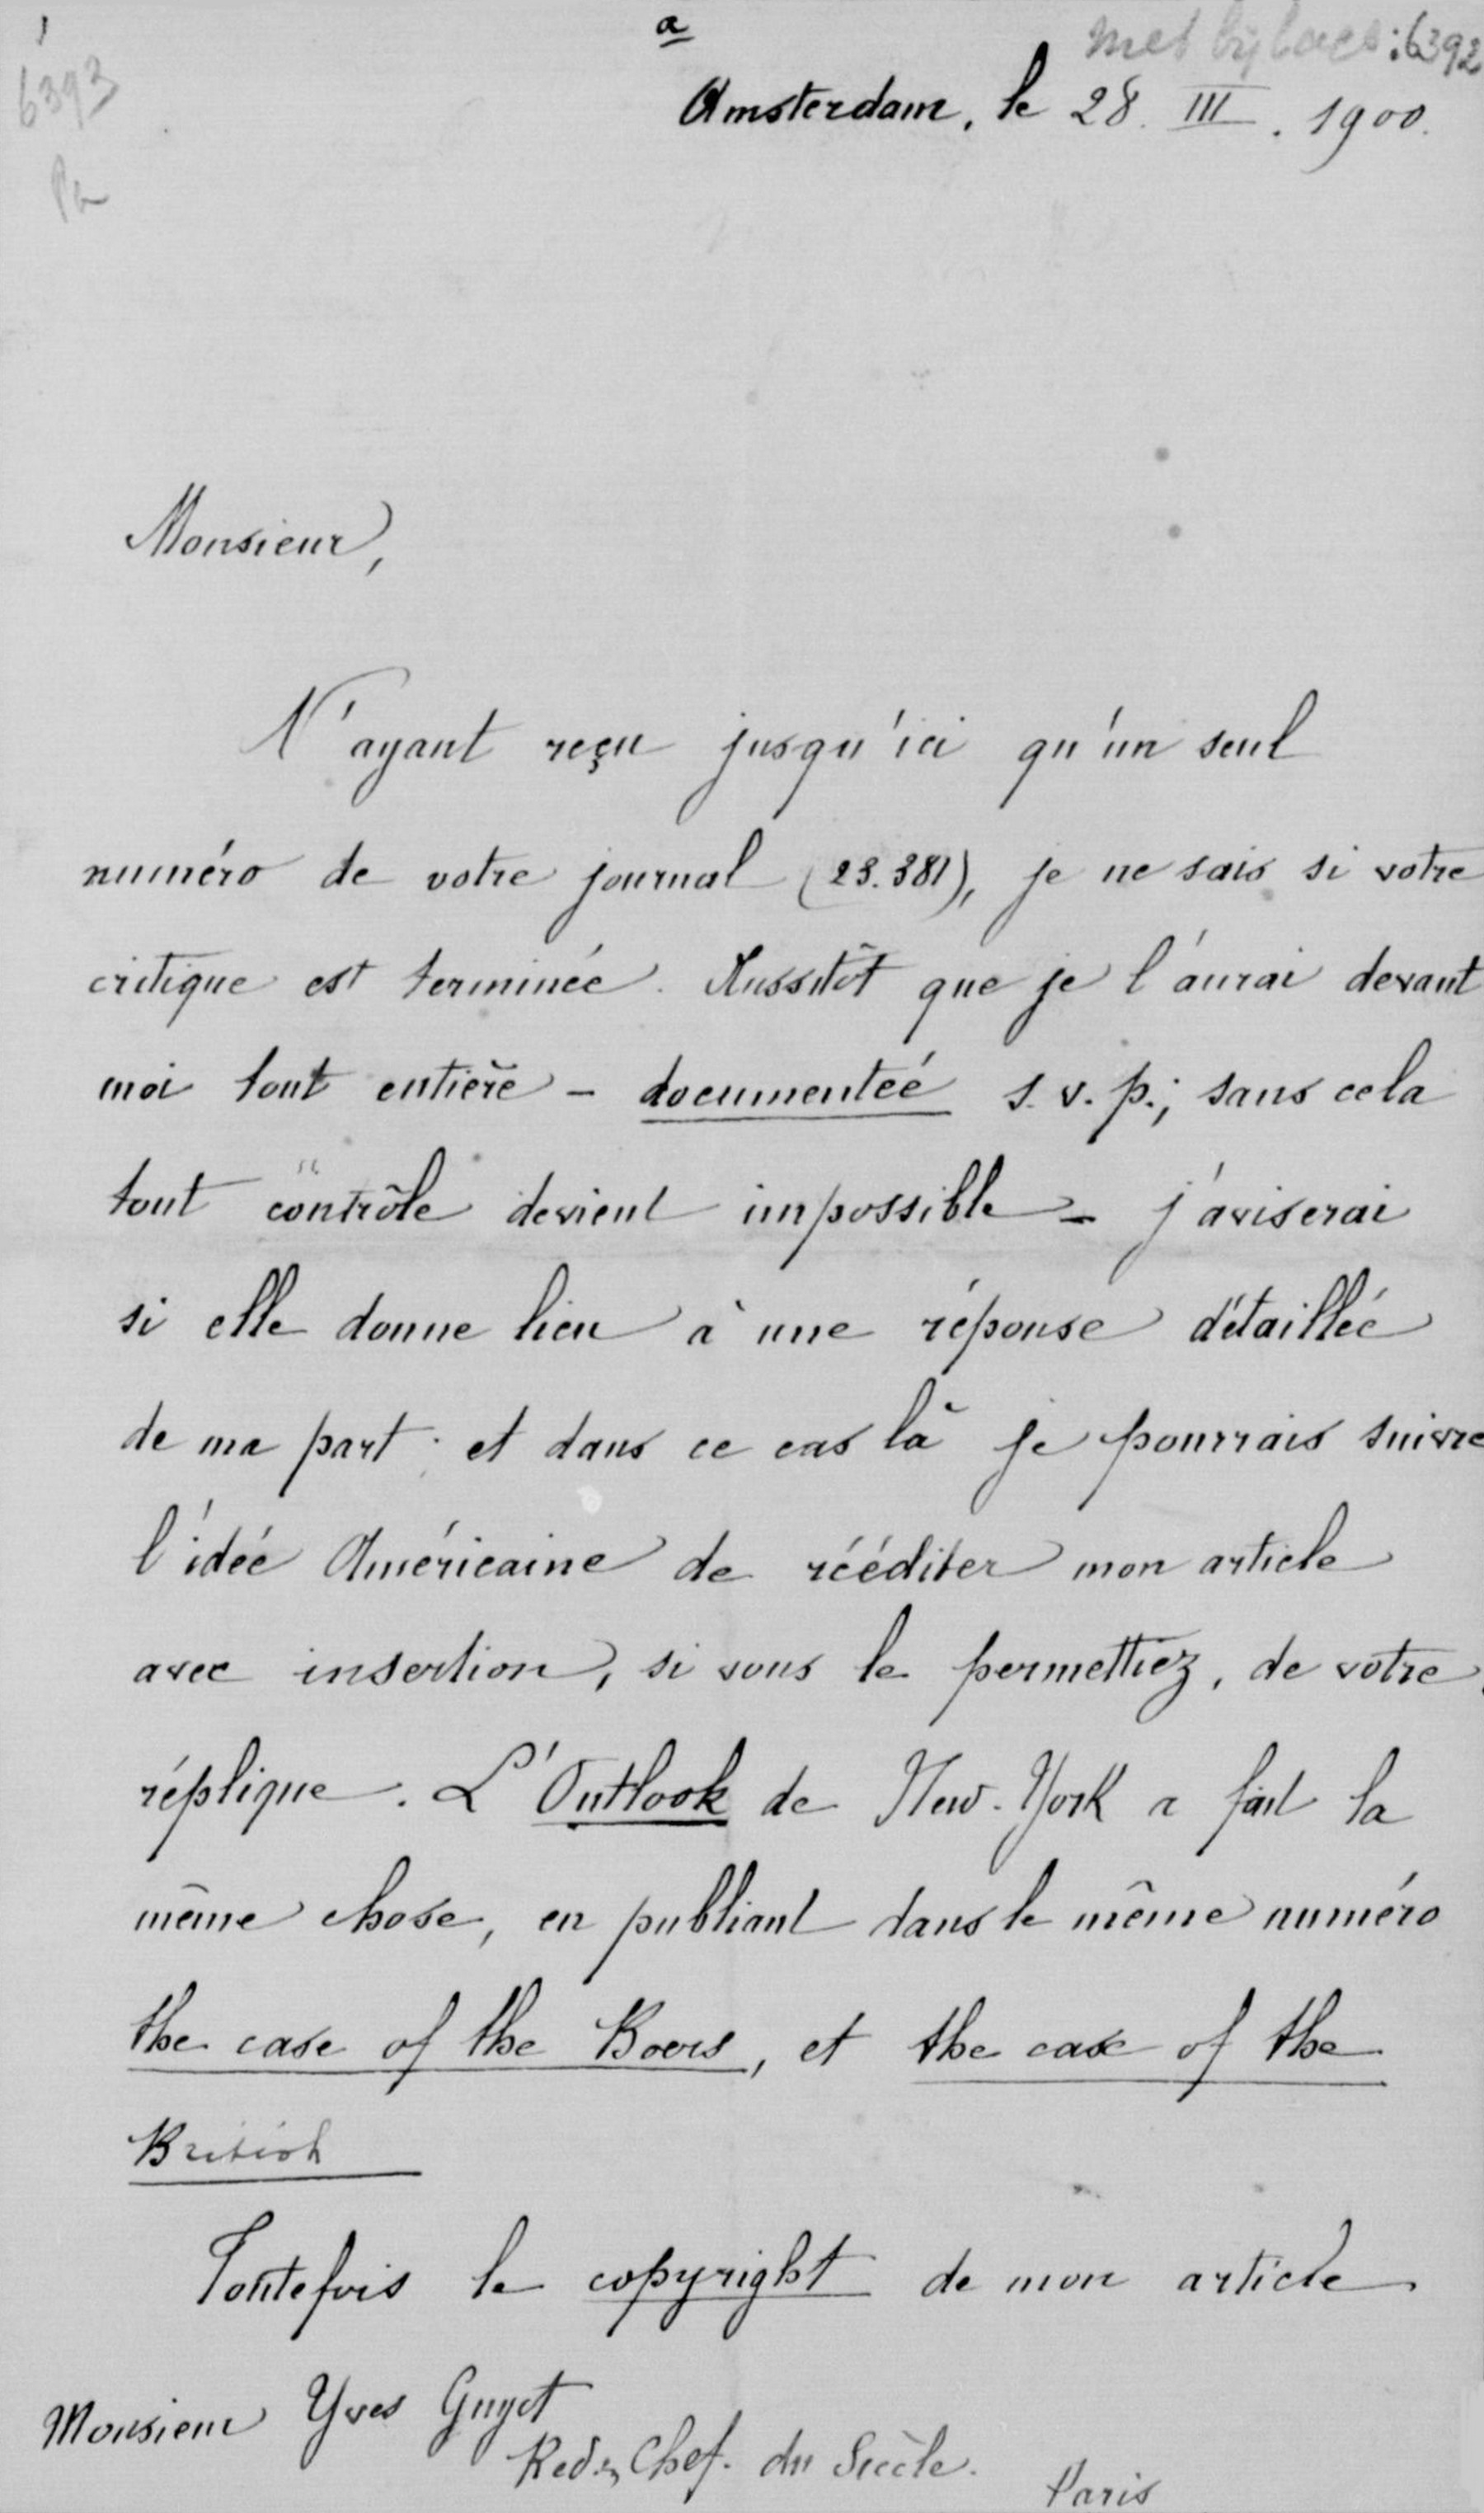 a
met bylaes: 6392
1
6393
Amsterdam, le 28. III. 1900.
Monsieur,
N'ayant reçu jusqu'ici qu'un seul
numéro de votre journal (23.381), je ne sais si votre
critique est terminée. Aussitôt que je l'aurai devant
moi tout entière – documentée s. v. p.; sans cela
tout contrôle devient impossible – j'aviserai
si elle donne lieu à une réponse détaillée
de ma part; et dans ce cas là je pourrais suivre
l'idée Américaine de rééditer mon article
avec insertion, si vous le permettiez, de votre
réplique. L'Outlook de New-York a fait la
même chose, en publiant dans le même numéro
the case of the Boers, et the case of the
British
Toutefois le copyright de mon article
Monsieur Yves Guyot
Red. en Chef. du Siècle.
Paris